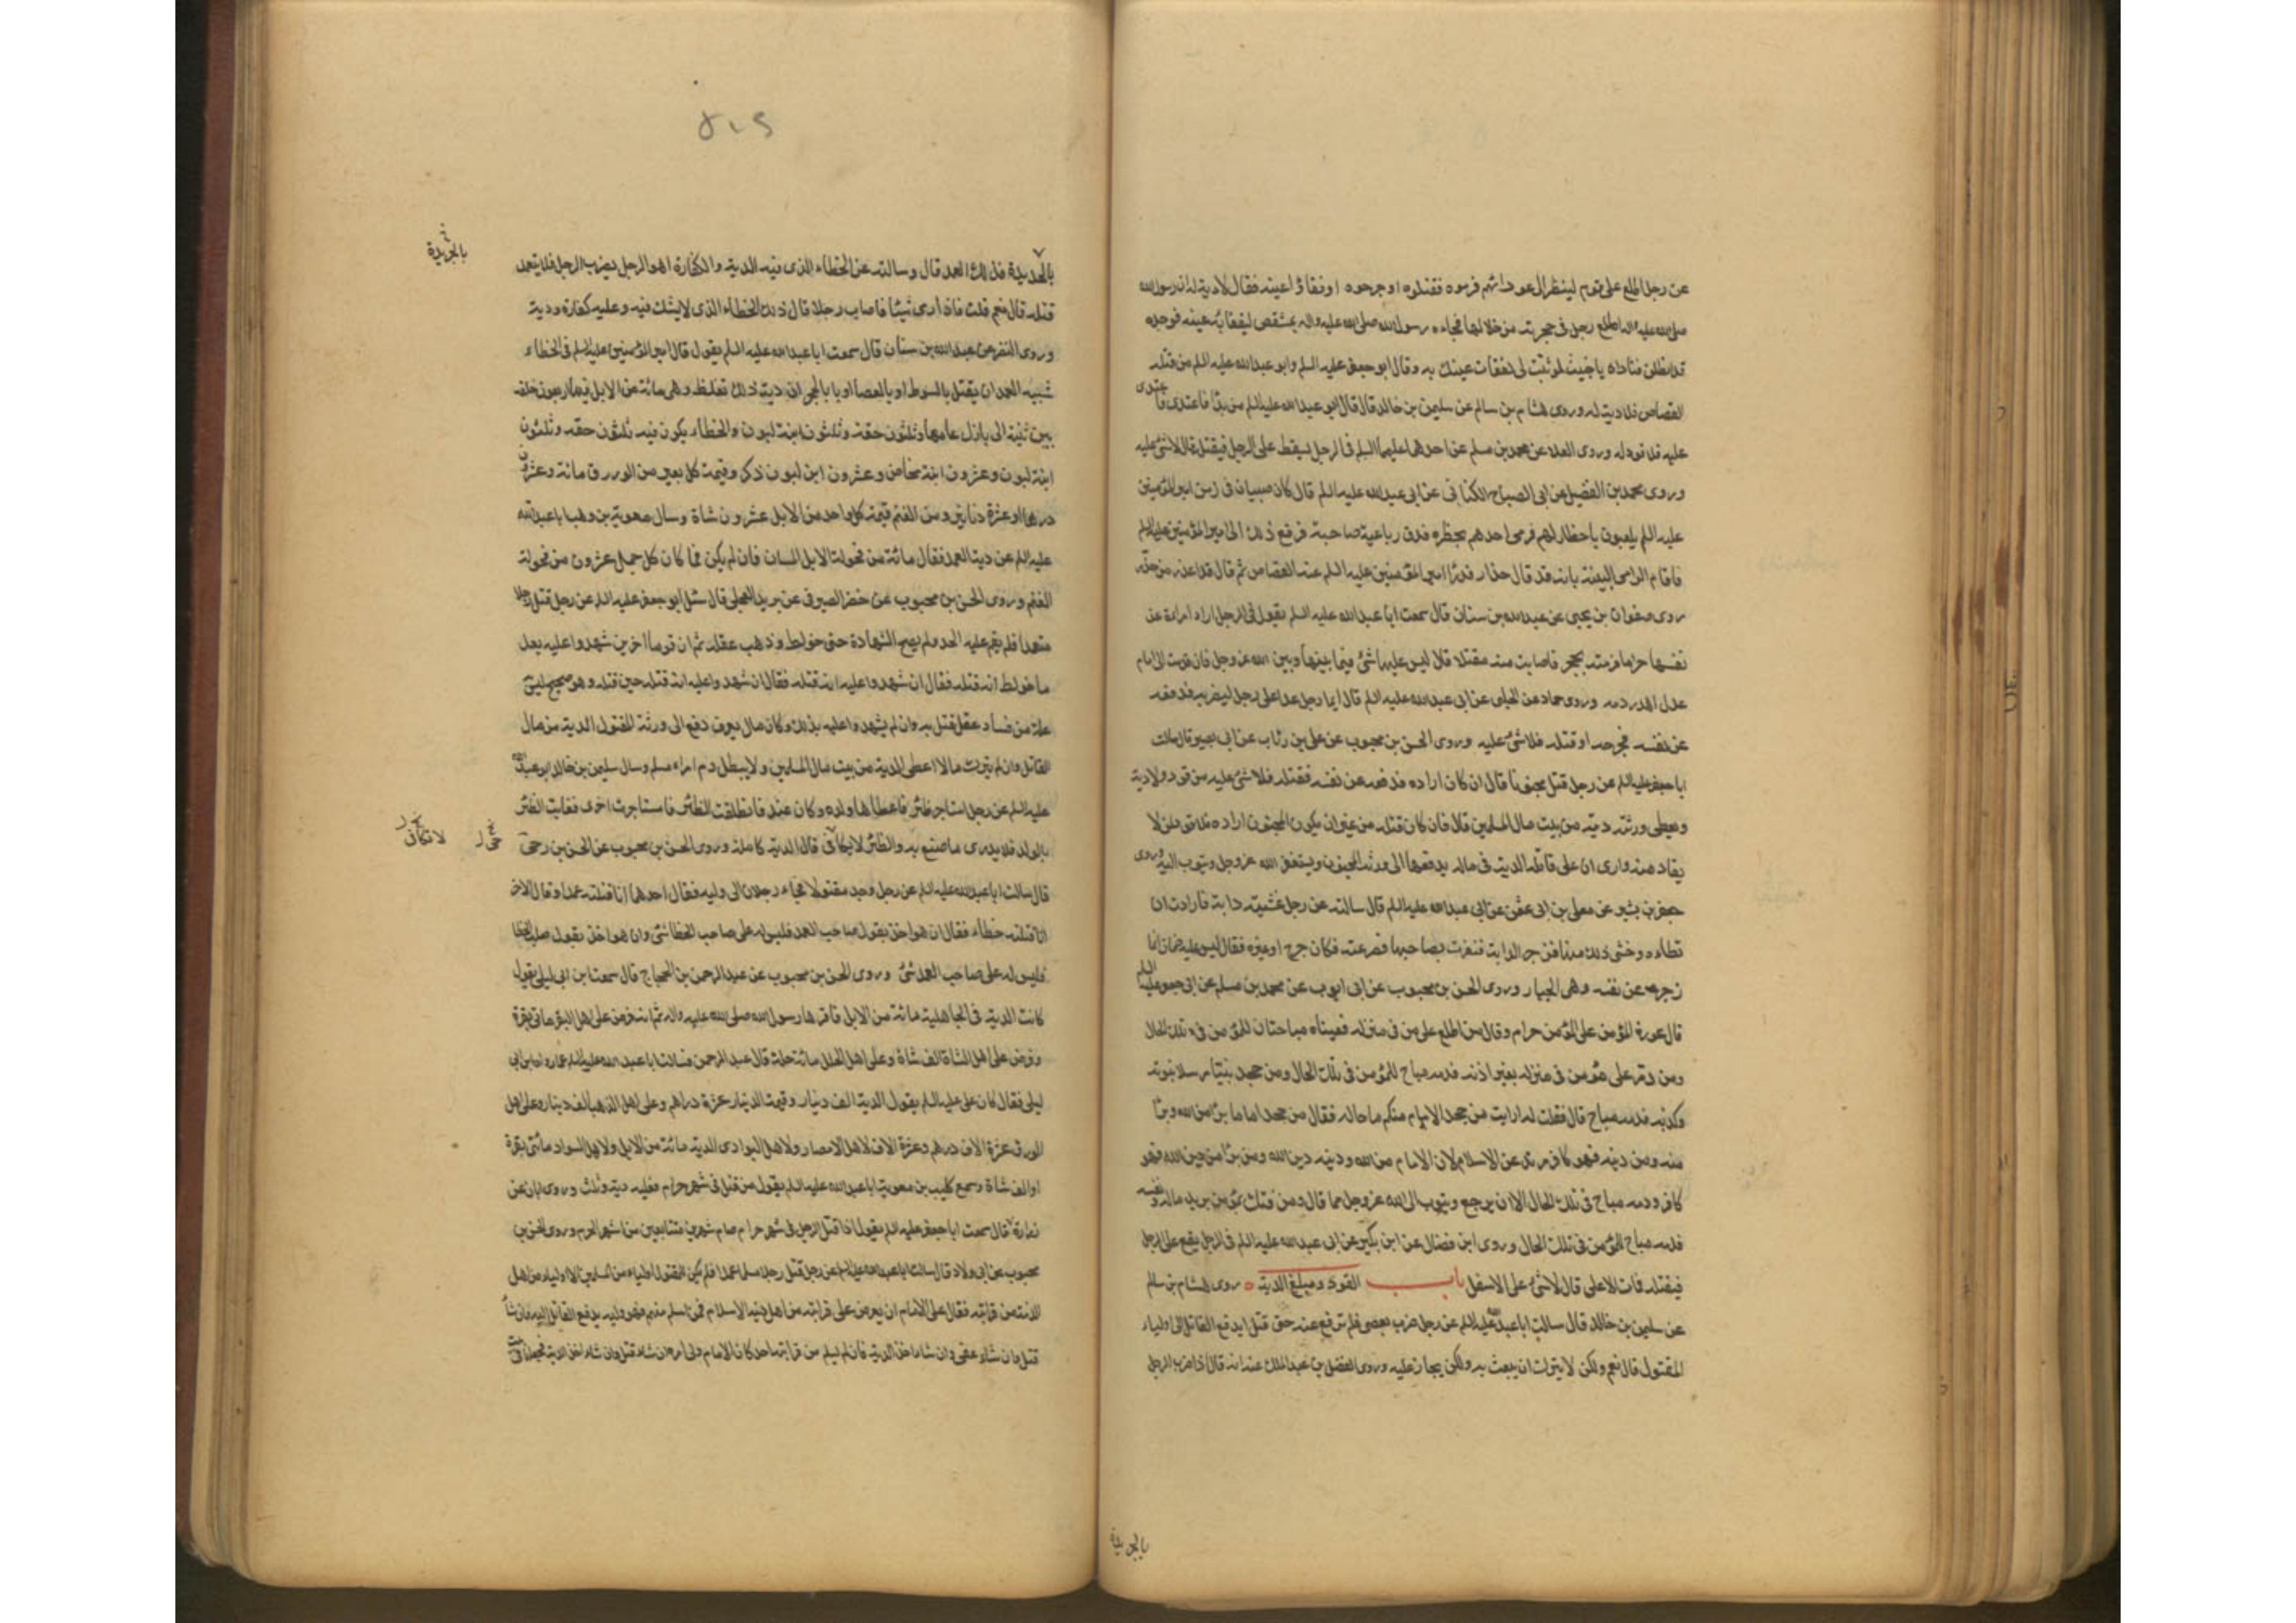 عن رجل اطلع على قوم لينظر الى عوراتهم فرموه فقتلوه او جرحوه او فقاؤا عينه فقال لا دية له ان رسول الله
صلى الله عليه واله اطلع رجل فى حجرته من خلالها فجاءه رسول الله صلى الله عليه واله بمشقص ليفقأ به عينه فوجده
قد انطلق فناداه يا خبيث لو ثبت لى لفقات عينك به وقال ابو جعفر عليه السلم وابو عبد الله عليه السلم من قتله
القصاص فلا دية له وروى هشام بن سالم عن سليمن بن خالد قال قال ابو عبد الله عليه السلم من بدأ فاعتدى فاعتدى
عليه فلا قود له وروى العلا عن محمد بن مسلم عن احدهما عليهما السلم فى الرجل يسقط على الرجل فيقتله قال لا شئ عليه
وروى محمد بن الفضيل عن ابى الصباح الكنانى عن ابى عبد الله عليه السلم قال كان صبيان فى زمن امير المؤمنين
عليه السلم يلعبون باخطار لهم فرمى احدهم بخطره فدق رباعية صاحبه فرفع ذلك الى امير المؤمنين عليه السلم
فاقام الرامى البينة بانه قد قال حذار فدرأ امير المؤمنين عليه السلم عنه القصاص ثم قال قد اعذر من حذر
روى صفوان بن يحيى عن عبد الله بن سنان قال سمعت ابا عبد الله عليه السلم يقول فى الرجل اراد امراة عن
نفسها حراما فرمته بحجر فاصابت منه مقتلا قال ليس عليها شئ فيما بينها وبين الله عز وجل فان قدمت الى امام
عدل اهدر دمه وروى حماد عن الحلبى عن ابى عبد الله عليه السلم قال ايما رجل عدا على رجل ليضربه فدفعه
عن نفسه فجرحه او قتله فلا شئ عليه وروى الحسن بن محبوب عن على بن رئاب عن ابى بصير قال سالت
ابا جعفر عليه السلم عن رجل قتل مجنونا قال ان كان اراده فدفعه عن نفسه فقتله فلا شئ عليه من قود ولا دية
ويعطى ورثته ديته من بيت مال المسلمين قال فان كان قتله من غير ان يكون المجنون اراده فلا قود لمن لا
يقاد منه وارى ان على قاتله الدية فى ماله يدفعها الى ورثة المجنون ويستغفر الله عز وجل ويتوب اليه وروى
جعفر بن بشير عن معلى بن ابى عثمن عن ابى عبد الله عليه السلم قال سالته عن رجل غشيته دابة فارادت ان
تطاءه وخشى ذلك منها فزجر الدابة فنفرت بصاحبها فصرعته فكان جرح او غيره فقال ليس عليه ضمان انما
زجر عن نفسه وهى الجبار وروى الحسن بن محبوب عن ابى ايوب عن محمد بن مسلم عن ابى جعفر عليه السلم
قال عورة المؤمن على المؤمن حرام وقال من اطلع على مؤمن فى منزله فعيناه مباحتان للمؤمن فى تلك الحال
ومن دمر على مؤمن فى منزله بغير اذنه فدمه مباح للمؤمن فى تلك الحال ومن جحد نبيا مرسلا نبوته
وكذبه فدمه مباح قال فقلت له ارايت من جحد الامام منكم ما حاله فقال من جحد اماما برئ من الله وبرئ
منه ومن دينه فهو كافر مرتد عن الاسلام لان الامام من الله ودينه دين الله ومن برئ من دين الله فهو
كافر ودمه مباح فى تلك الحال الا ان يرجع ويتوب الى الله عز وجل مما قال ومن فتك بمؤمن يريد ماله ونفسه
فدمه مباح للمؤمن فى تلك الحال وروى ابن فضال عن ابن بكير عن ابى عبد الله عليه السلم فى الرجل يقع على الرجل
فيقتله فمات الاعلى قال لا شئ على الاسفل باب القود ومبلغ الدية روى هشام بن سالم
عن سليمن بن خالد قال سالت ابا عبد الله عليه السلم عن رجل ضرب بعصى فلم ترفع عنه حتى قتل ايدفع القاتل الى اولياء
المقتول قال نعم ولكن لا يترك ان يعبث به ولكن يجاز عليه وروى الفضل بن عبد الملك عنه انه قال اذا ضرب الرجل
بالحديدة
بالحديدة فذلك العمد قال وسالته عن الخطاء الذى فيه الدية والكفارة اهو الرجل يضرب الرجل فلا يتعمد
قتله قال نعم قلت فاذا رمى شيئا فاصاب رجلا قال ذلك الخطاء الذى لا يشك فيه وعليه كفارة ودية
وروى النضر عن عبد الله بن سنان قال سمعت ابا عبد الله عليه السلم يقول قال امير المؤمنين عليه السلم فى الخطاء
شبيه العمد ان يقتل بالسوط او بالعصا او بالحجر ان دية ذلك تغلظ وهى مائة من الابل فيها اربعون خلفة
بين ثنية الى بازل عامها وثلثون حقة وثلثون ابنة لبون والخطاء يكون فيه ثلثون حقة وثلثون
ابنة لبون وعشرون ابنة مخاض وعشرون ابن لبون ذكر وقيمة كل بعير من الورق مائة وعشرون
درهما او عشرة دنانير ومن الغنم قيمة كل واحد من الابل عشرون شاة وسال معوية بن وهب ابا عبد الله
عليه السلم عن دية العمد فقال مائة من فحولة الابل المسان فان لم يكن فمكان كل جمل عشرون من فحولة
الغنم وروى الحسن بن محبوب عن خضر الصيرفى عن بريد العجلى قال سئل ابو جعفر عليه السلم عن رجل قتل رجلا
متعمدا فلم يقم عليه الحد ولم يصح الشهادة حتى خولط وذهب عقله ثم ان قوما اخرين شهدوا عليه بعد
ما خولط انه قتله فقال ان شهدوا عليه انه قتله حين قتله وهو صحيح ليس به
علة من فساد عقل قتل به وان لم يشهدوا عليه بذلك وكان له مال يعرف دفع الى ورثة المقتول الدية من مال
القاتل وان لم يترك مالا اعطى الدية من بيت مال المسلمين ولا يبطل دم امرء مسلم وسال سليمن بن خالد ابا عبد الله
عليه السلم عن رجل استاجر ظئرا فاعطاها ولده وكان عندها فانطلقت الظئر فاستاجرت اخرى فغابت الظئر
بالولد فلا يدرى ما صنع به والظئر لا تكافى قال الدية كاملة وروى الحسن بن محبوب عن الحسن بن حى
لا تكافى
قال سالت ابا عبد الله عليه السلم عن رجل وجد مقتولا فجاء رجلان الى وليه فقال احدهما انا قتلته عمدا وقال الاخر
انا قتلته خطاء فقال ان هو اخذ بقول صاحب العمد فليس له على صاحب الخطا شئ وان هو اخذ بقول صاحب الخطا
فليس له على صاحب العمد شئ وروى الحسن بن محبوب عن عبد الرحمن بن الحجاج قال سمعت ابن ابى ليلى يقول
كانت الدية فى الجاهلية مائة من الابل فاقرها رسول الله صلى الله عليه واله ثم انه فرض على اهل البقر مائتى بقرة
وفرض على اهل الشاة الف شاة وعلى اهل الحلل مائة حلة قال عبد الرحمن فسالت ابا عبد الله عليه السلم عما رواه ابن ابى
ليلى فقال كان على عليه السلم يقول الدية الف دينار وقيمة الدينار عشرة دراهم وعلى اهل الذهب الف دينار وعلى اهل
الورق عشرة الاف درهم وعشرة الاف لاهل الامصار ولاهل البوادى الدية مائة من الابل ولاهل السواد مائتى بقرة
او الف شاة وسمع كليب بن معوية ابا عبد الله عليه السلم يقول من قتل فى شهر حرام فعليه دية وثلث وروى ابان عن
زرارة قال سمعت ابا جعفر عليه السلم يقول اذا قتل الرجل فى شهر حرام صام شهرين متتابعين من اشهر الحرم وروى الحسن بن
محبوب عن ابى ولاد قال سالت ابا عبد الله عليه السلم عن رجل قتل رجلا مسلما عمدا فلم يكن للمقتول اولياء من المسلمين الا اولياء من اهل
الذمة من قرابته فقال على الامام ان يعرض على قرابته من اهل بيته الاسلام فمن اسلم منهم فهو وليه يدفع القاتل اليه فان شاء
قتل وان شاء عفى وان شاء اخذ الدية فان لم يسلم من قرابته احد كان الامام ولى امره ان شاء قتل وان شاء اخذ الدية فجعلها فى بيت